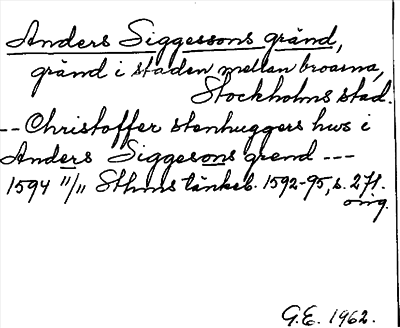 Anders Siggessons gränd,
gränd i staden mellan broarna,
Stockholms stad.
-- Christoffer stenhuggers hws i
Anders Siggesons grend ---
1594 11/11 Sthms tänkeb. 1592-95, s. 271.
orig.
G.E. 1962.